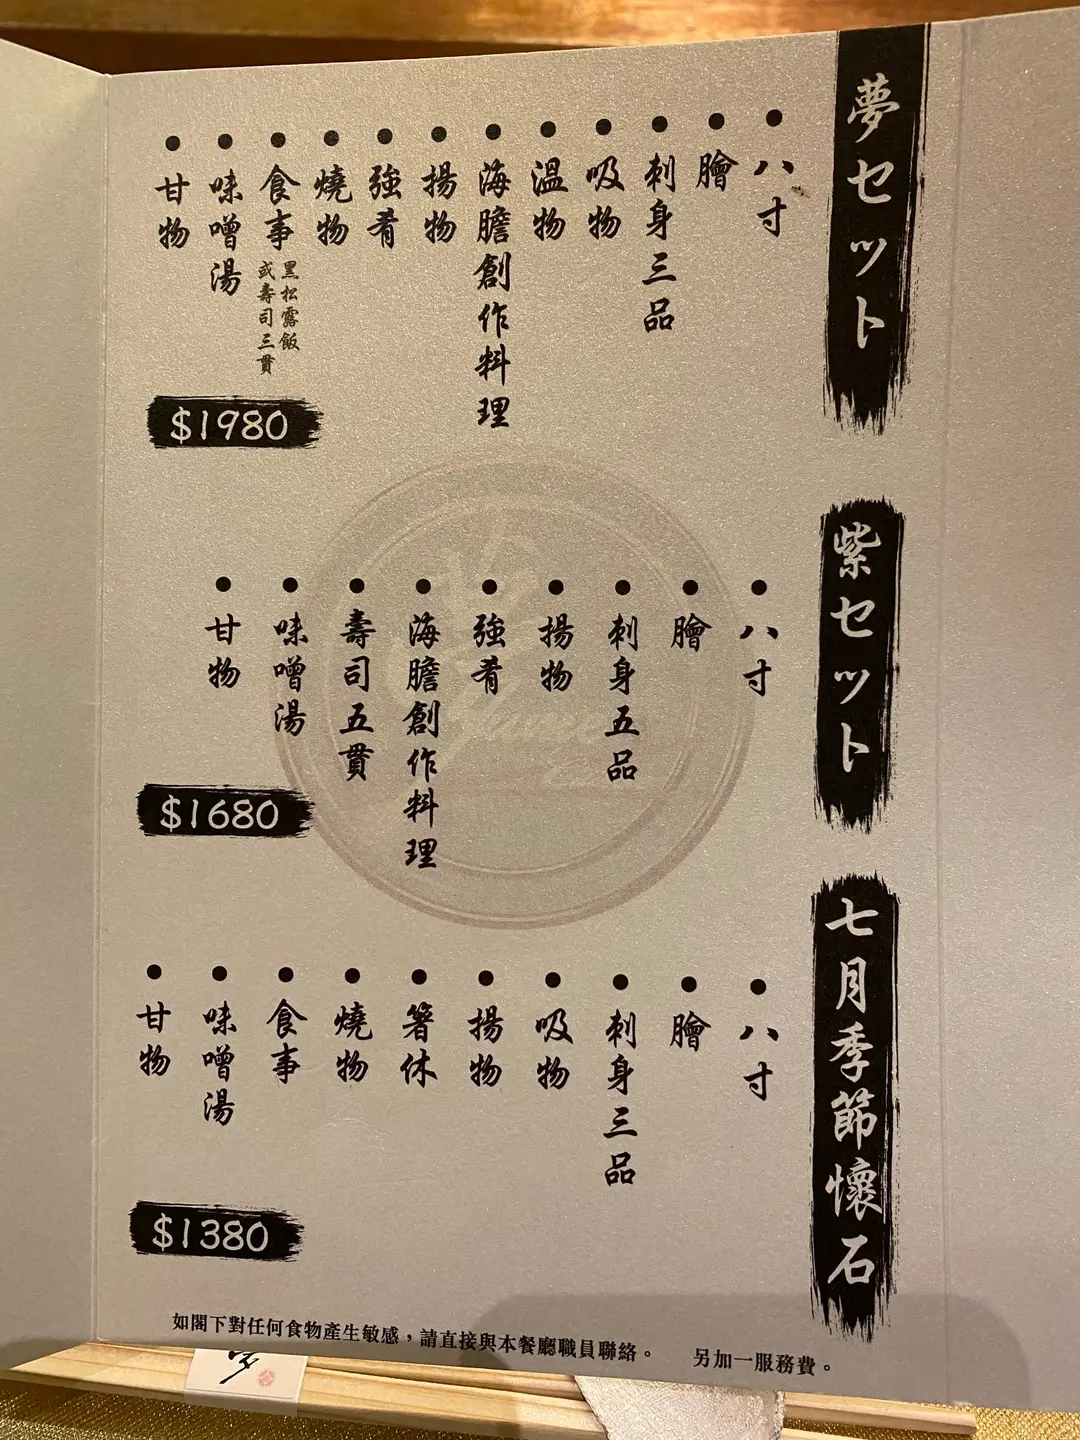 夢セット
八寸
膾
刺身三品
吸物
溫物
海膽創作料理
揚物
強肴
燒物
食事
黑松露飯
或壽司三貫
味噌湯
甘物
$1980
紫セット
八寸
膾
刺身五品
揚物
強肴
海膽創作料理
壽司五貫
味噌湯
甘物
$1680
七月季節懷石
八寸
膾
刺身三品
吸物
揚物
箸休
燒物
食事
味噌湯
甘物
$1380
如閣下對任何食物產生敏感，請直接與本餐廳職員聯絡。 另加一服務費。